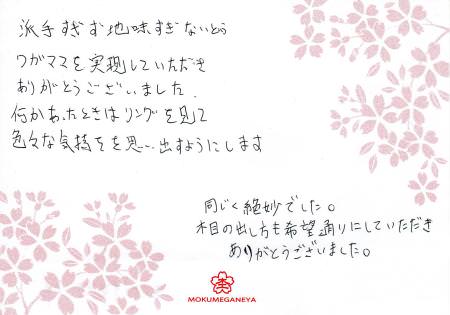 派手すぎず地味すぎないとゆう
ワガママを実現していただき
ありがとうございました.
何かあったときはリングを見て
色々な気持ちを思い出すようにします
同じく絶妙でした。
木目の出し方も希望通りにしていただき
ありがとうございました。
MOKUMEGANEYA